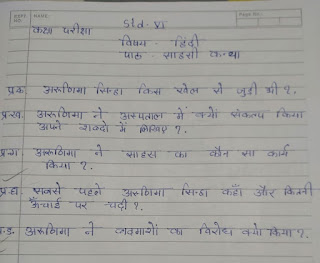 EXPT. NO.
NAME:
Page No.:
कक्षा परीक्षा Std-VI
विषय - हिंदी
पाठ - साहसी कन्या
प्र.क. अरुणिमा सिन्हा किस खेल से जुड़ी थी?.
प्र.ख. अरुणिमा ने अस्पताल में क्यों संकल्प किया
अपने शब्दो में लिखिए?.
प्र.ग. अरुणिमा ने साहस का कौन सा कार्य
किया?.
प्र.घ. सबसे पहले अरुणिमा सिन्हा कहाँ और कितनी
ऊँचाई पर चढ़ी?.
प्र.ङ. अरुणिमा ने बदमाशों का विरोध क्यो किया?.